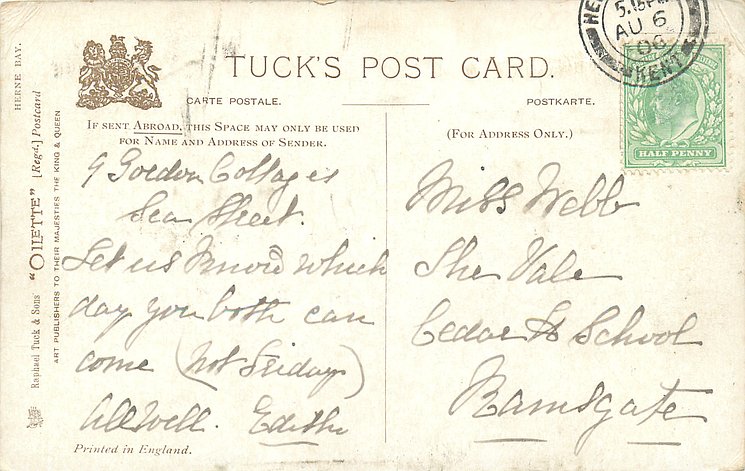 HERNE BAY.
Raphael Tuck & Sons' "OILETTE" [Regd.] Postcard
ART PUBLISHERS TO THEIR MAJESTIES THE KING & QUEEN
TUCK'S POST CARD.
CARTE POSTALE.
POSTKARTE.
IF SENT ABROAD, THIS SPACE MAY ONLY BE USED
FOR NAME AND ADDRESS OF SENDER.
(FOR ADDRESS ONLY.)
HE
5.15P
AU 6
06
KENT
HALF PENNY
9 Gordon Cottages
Sea Street.
Let us know which
day you both can
come (not Friday)
All well. Edith
Miss Webb
The Vale
Cedar School
Ramsgate
Printed in England.